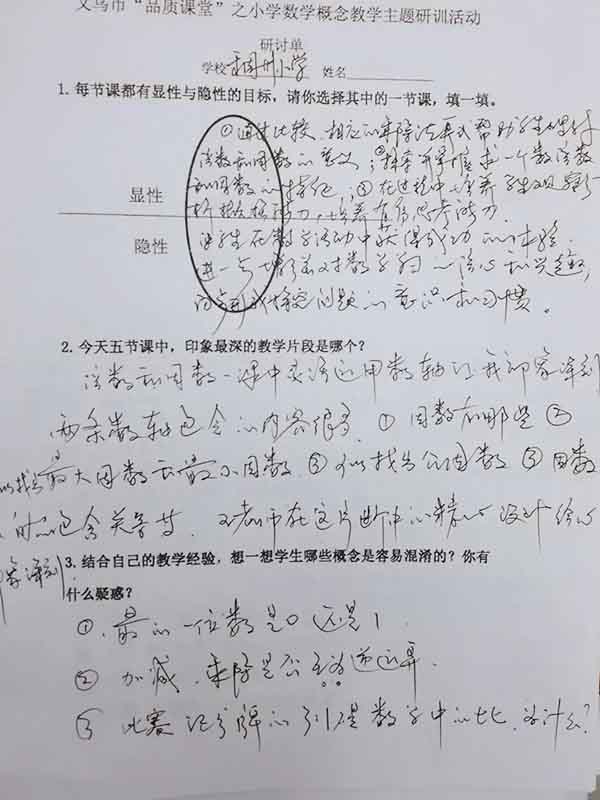 义乌市“品质课堂”之小学数学概念教学主题研训活动
研讨单
学校 稠州小学 姓名
1. 每节课都有显性与隐性的目标，请你选择其中的一节课，填一填。
①通过比较、相应的乘除法算式帮助学生理解
倍数和因数的意义；②探索并掌握求一个数倍数
和因数的 ；③在过程中培养学生观察分
显性
析概括能力，培养有序思考能力。
隐性
让学生在数学活动中获得成功的体验，
进一步增强对数学的 心和兴趣，
探究问题的意识和习惯。
2. 今天五节课中，印象最深的教学片段是哪个？
倍数和因数一课中灵活运用数轴让我印象深刻
两条数轴包含的内容很多，①因数有哪些②
可以找出最大因数和最小因数③可以找出公因数③因数
的包含关系等。 老师在这片断中的精心设计给我
印象深刻。
3. 结合自己的教学经验，想一想学生哪些概念是容易混淆的？你有
什么疑惑？
①、最 的一位数是0还是1.
② 加减、乘除是否互为逆运算.
③ 比赛记分牌的引 是数学中的比，为什么？